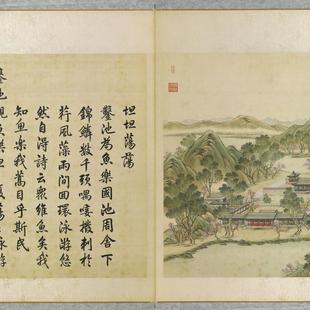 坦坦蕩蕩
鑿池為魚樂國池周舍下
錦鱗數千頭喁唼撥刺於
荇風藻雨間回環泳游悠
然自得詩云衆維魚矣我
知魚樂我蒿目乎斯民
池觀魚樂坦復蕩泳游